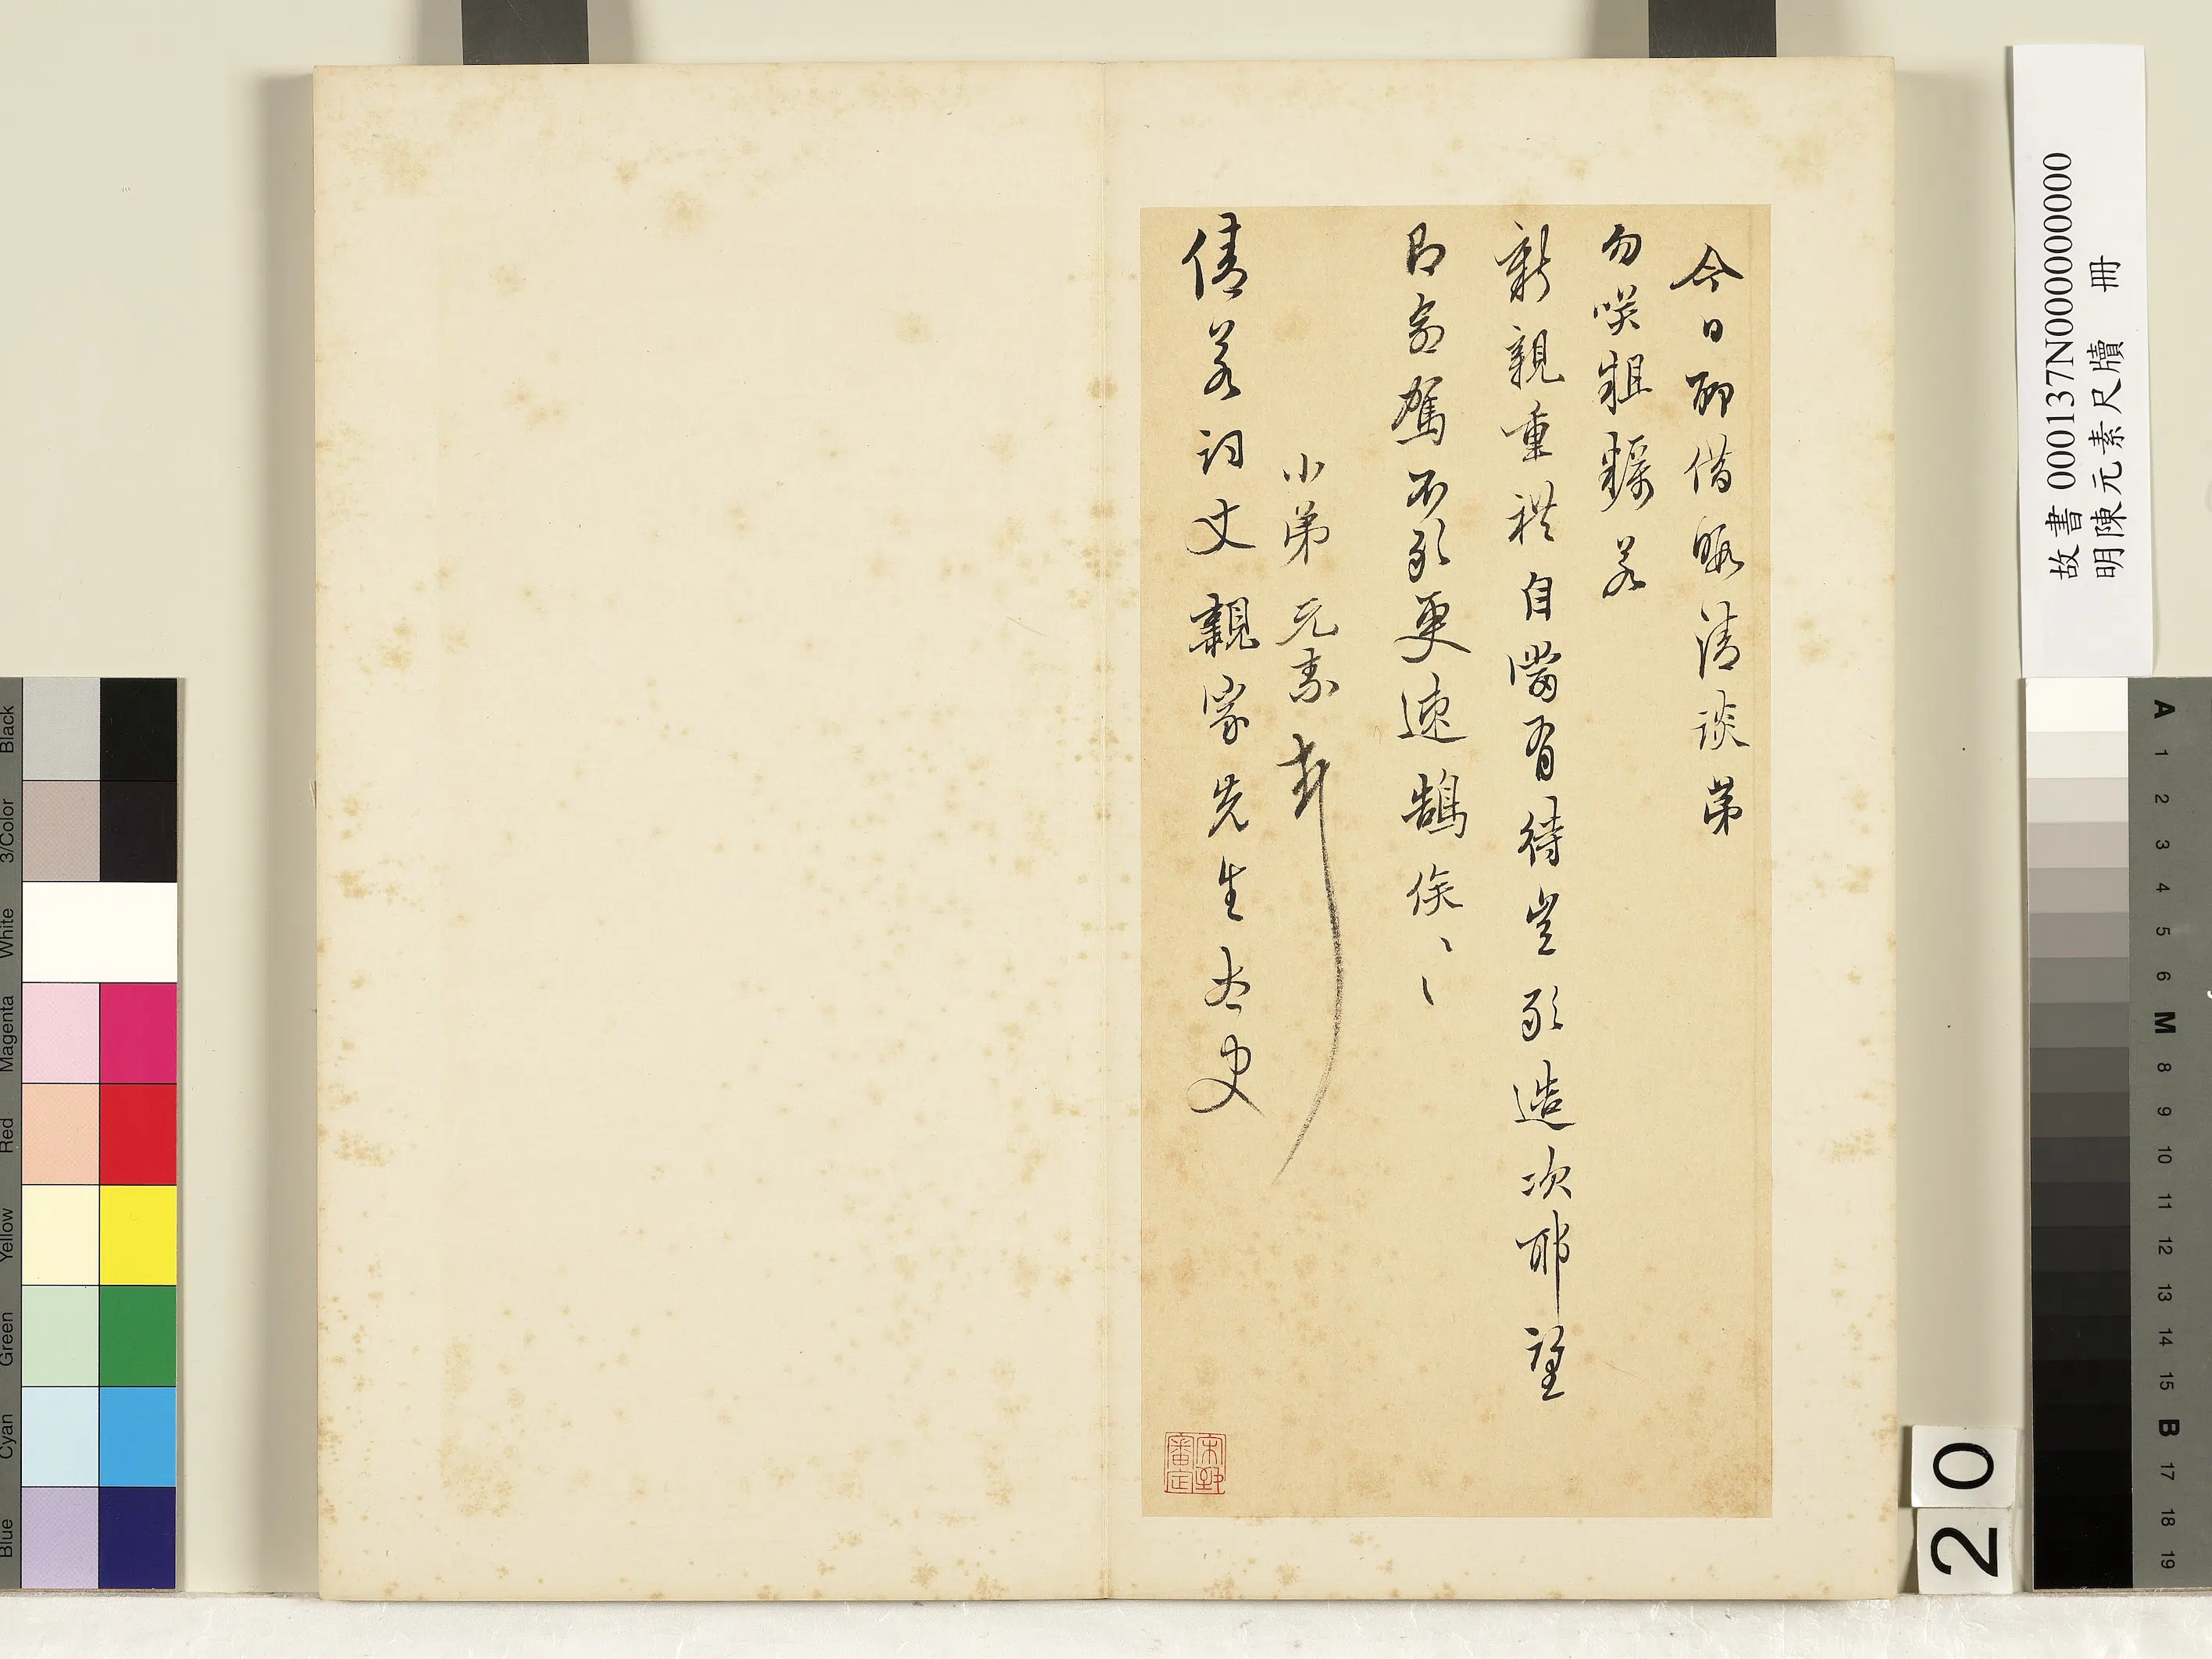 今日聊借暇清談弟
勿咲粗糲若
新親重禮自當有待豈敢造次耶望
即命駕不敢更速鵠俟、、
小弟元素
倩若詞丈親家先生大史
宋犖
審定
故書 000137N000000000
明陳元素尺牘 冊
20
Black
3/Color
White
Magenta
Red
Yellow
Green
Cyan
Blue
A 1 2 3 4 5 6 M 8 9 10 11 12 13 14 15 B 17 18 19